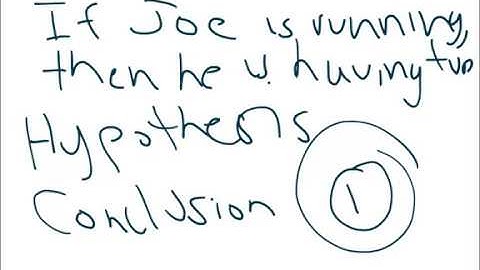 If Joe is running,
then he is having fun
Hypothesis
Conclusion
1